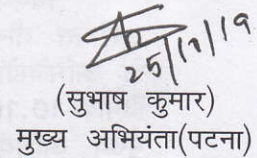 25/11/19
(सुभाष कुमार)
मुख्य अभियंता(पटना)